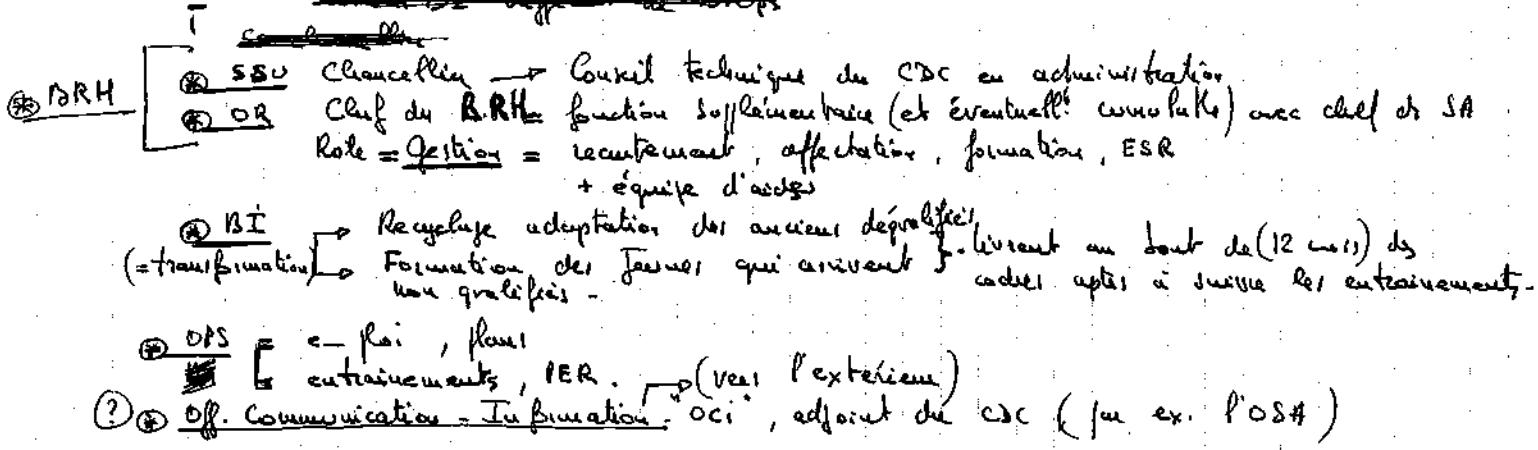 BRH
SSU Chancellier → Conseil technique du CDC en administration
OR Chef du B.RH = fonction supplémentaire (et éventuellt cumulable) avec chef de SA
Rôle = Gestion = recrutement, affectation, formation, ESR
+ équipe d'aides
BI → Recyclage adaptation des anciens déqualifiés
(= transformation) → Formation des Jeunes qui arrivent } livrent au bout de (12 mois) des
non qualifiés - cadres aptes à suivre les entrainements -
OPS = emploi, plans
entrainements, PER.
→ (vers l'extérieur)
(?) Off. Communication - Information - "OCi", adjoint du CDC (par ex. l'OSA)